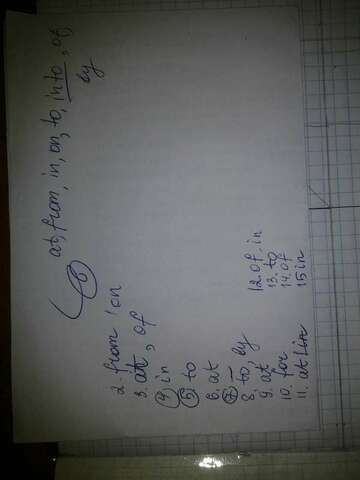 6 at, from, in, on, to, into, of,
by
2. from, on
3. at, of
4 in
5. to
6. at
7. —
8. to, by
9. at
10. for
11. at/in
12. of, in
13. to
14. of
15 in